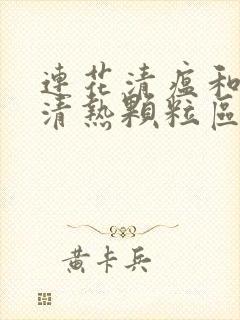 連花清瘟和
清熱顆粒區
黃卡兵